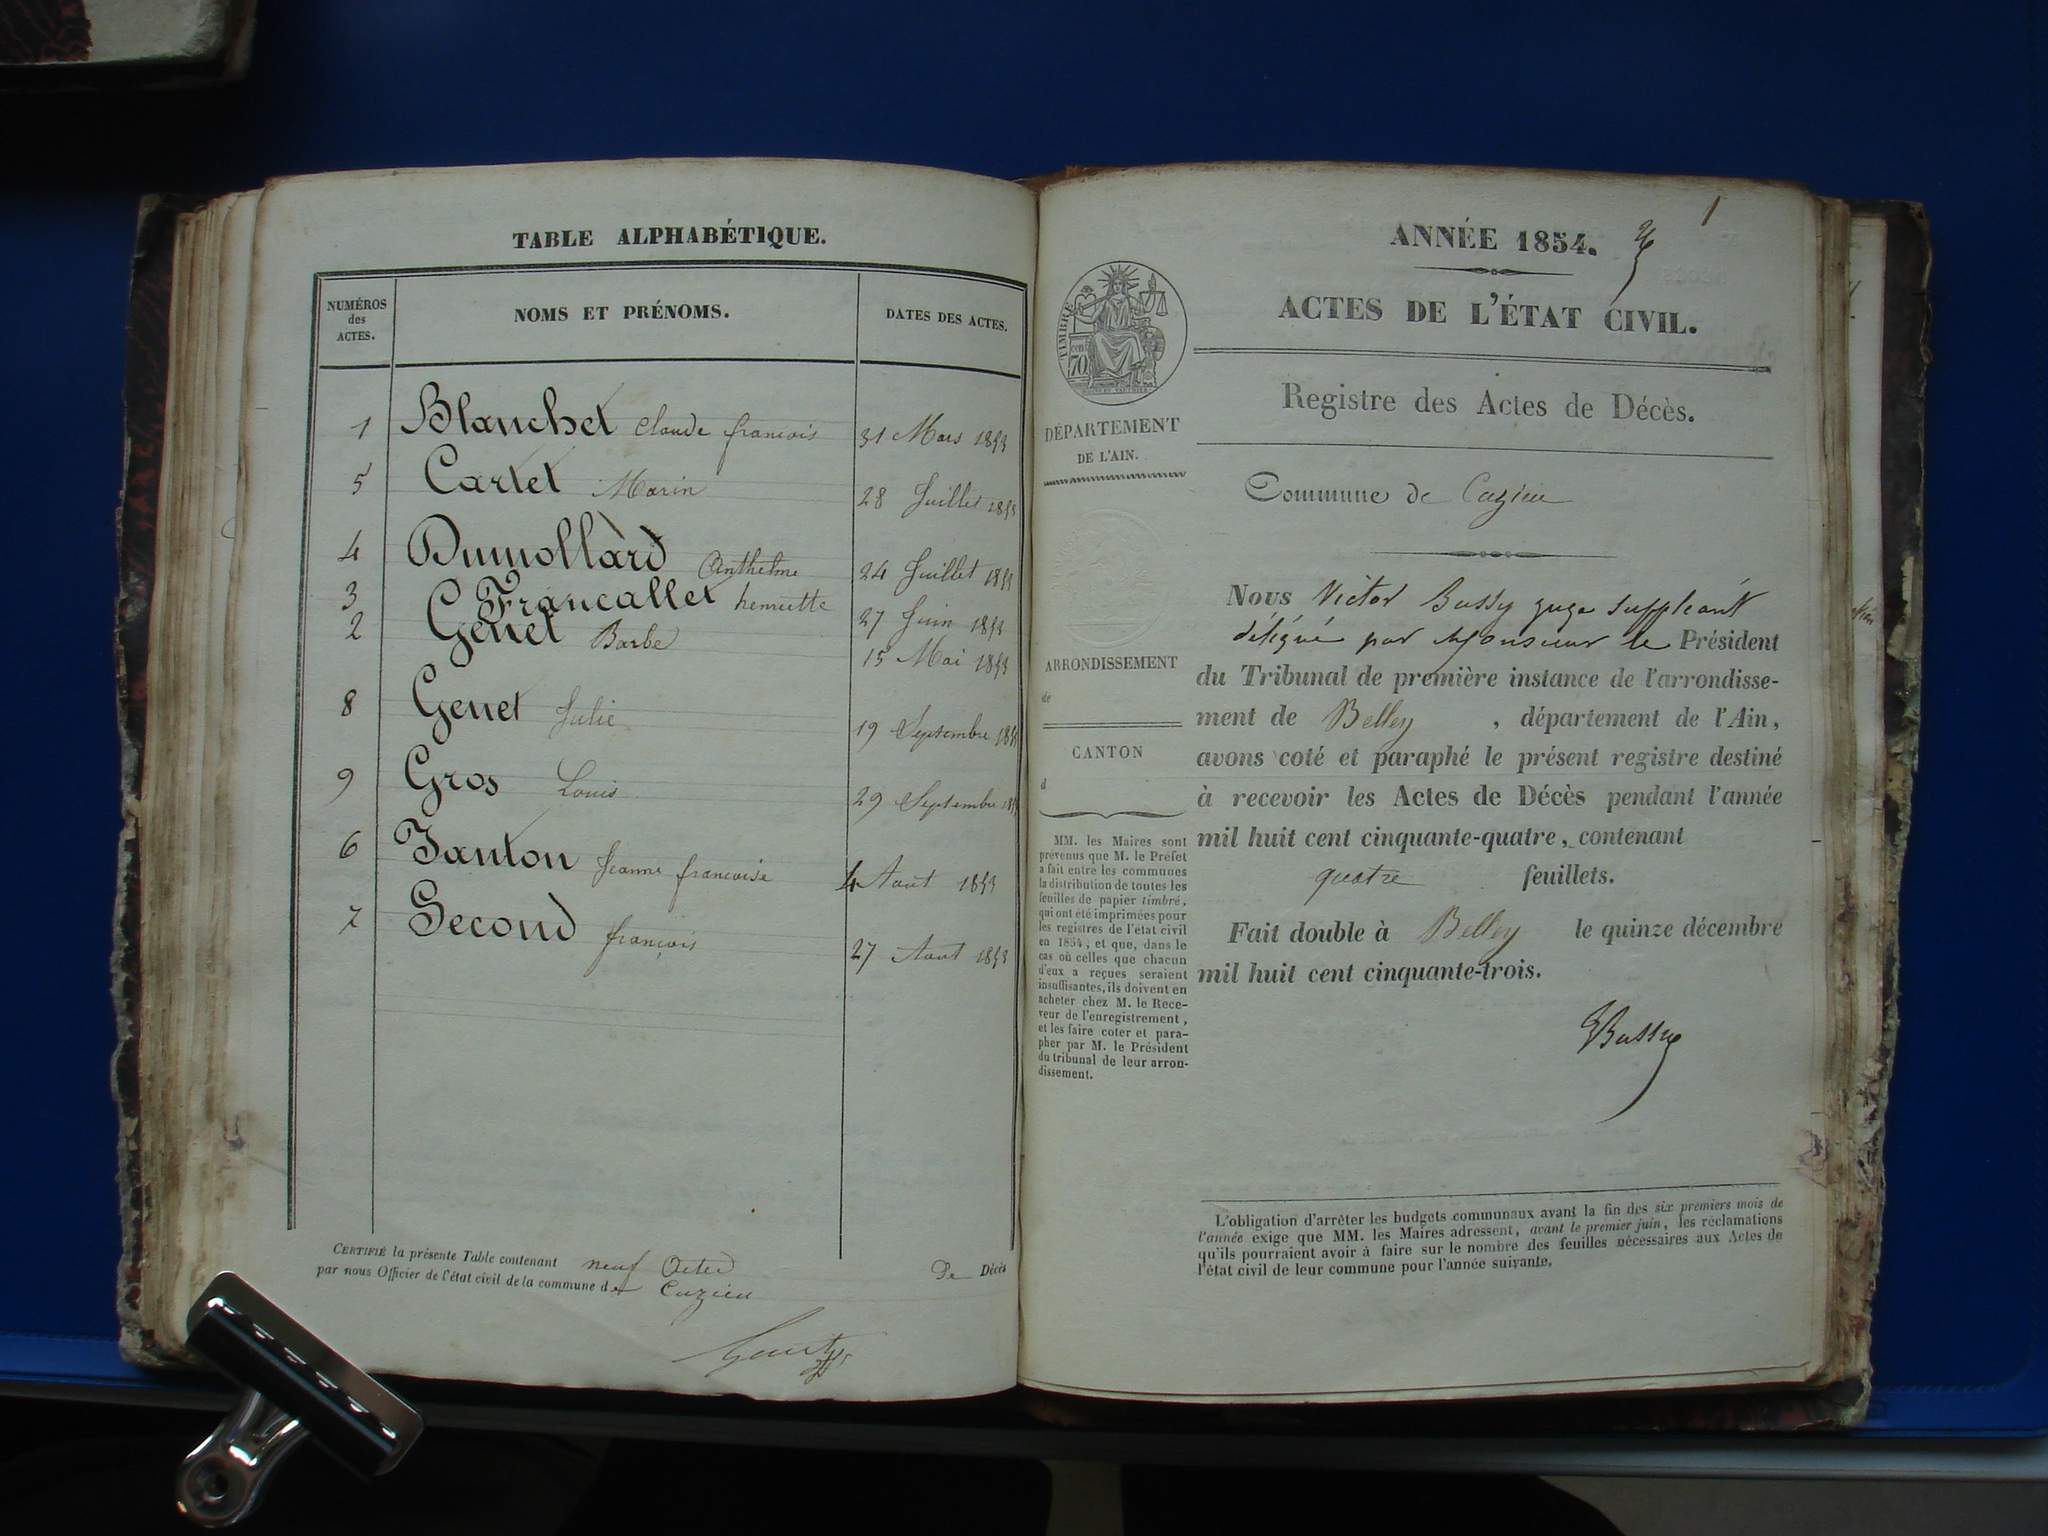 TABLE ALPHABÉTIQUE.
NUMÉROS
des
ACTES.
NOMS ET PRÉNOMS.
DATES DES ACTES.
1 Blanchet Claude françois 31 Mars 1853
5 Cartet Marin 28 Juillet 1853
4 Dumollard Anthelme 24 Juillet 1853
3 Francallet henriette 27 Juin 1853
2 Genet Barbe 15 Mai 1853
8 Genet Julie 19 Septembre 1853
9 Gros Louis 29 Septembre 1853
6 Janton Jeanne françoise 4 Aout 1853
7 Second françois 27 Aout 1853
CERTIFIÉ la présente Table contenant neuf Actes De Décès
par nous Officier de l'état civil de la commune de Cuzieu
1
ANNÉE 1854.
ACTES DE L'ÉTAT CIVIL.
Registre des Actes de Décès.
TIMBRE
70
DÉPARTEMENT
DE L'AIN.
Commune de Cuzieu
Nous Victor Bussy juge suppléant
délégué par Monsieur le Président
du Tribunal de première instance de l'arrondisse-
ment de Belley , département de l'Ain,
avons coté et paraphé le présent registre destiné
à recevoir les Actes de Décès pendant l'année
mil huit cent cinquante-quatre, contenant
quatre feuillets.
Fait double à Belley le quinze décembre
mil huit cent cinquante-trois.
Bussy
ARRONDISSEMENT
de
CANTON
d
MM. les Maires sont
prévenus que M. le Préfet
a fait entre les communes
la distribution de toutes les
feuilles de papier timbré,
qui ont été imprimées pour
les registres de l'état civil
en 1854, et que, dans le
cas où celles que chacun
d'eux a reçues seraient
insuffisantes, ils doivent en
acheter chez M. le Rece-
veur de l'enregistrement,
et les faire coter et para-
pher par M. le Président
du tribunal de leur arron-
dissement.
L'obligation d'arrêter les budgets communaux avant la fin des six premiers mois de
l'année exige que MM. les Maires adressent, avant le premier juin, les réclamations
qu'ils pourraient avoir à faire sur le nombre des feuilles nécessaires aux Actes de
l'état civil de leur commune pour l'année suivante.